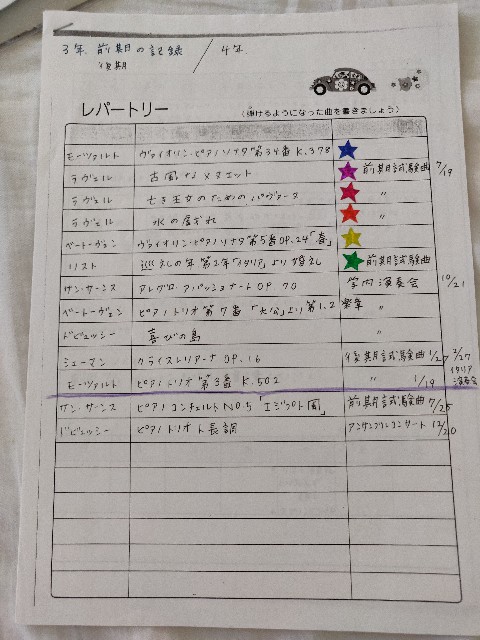 3年 前期の記録 / 4年
後期
レパートリー (弾けるようになった曲を書きましょう)
モーツァルト ヴァイオリン・ピアノソナタ第34番 K.378
ラヴェル 古風なメヌエット 前期試験曲 7/19
ラヴェル 亡き王女のためのパヴァーヌ 〃
ラヴェル 水の戯れ 〃
ベートーヴェン ヴァイオリン・ピアノソナタ第5番 OP.24「春」
リスト 巡礼の年 第2年「イタリア」より 婚礼 前期試験曲
サン・サーンス アレグロ・アパッショナート OP 70 学内演奏会 10/21
ベートーヴェン ピアノトリオ 第7番 「大公」より第1.2楽章 〃
ドビュッシー 喜びの島 〃
シューマン クライスレリアーナ OP.16 後期試験曲 1/27 2/27
モーツァルト ピアノトリオ 第3番 K.502 〃 1/19 イタリア演奏会
サン・サーンス ピアノコンチェルト NO5「エジプト風」 前期試験曲 7/25
ドビュッシー ピアノトリオ ト長調 アンサンブルコンサート 12/20